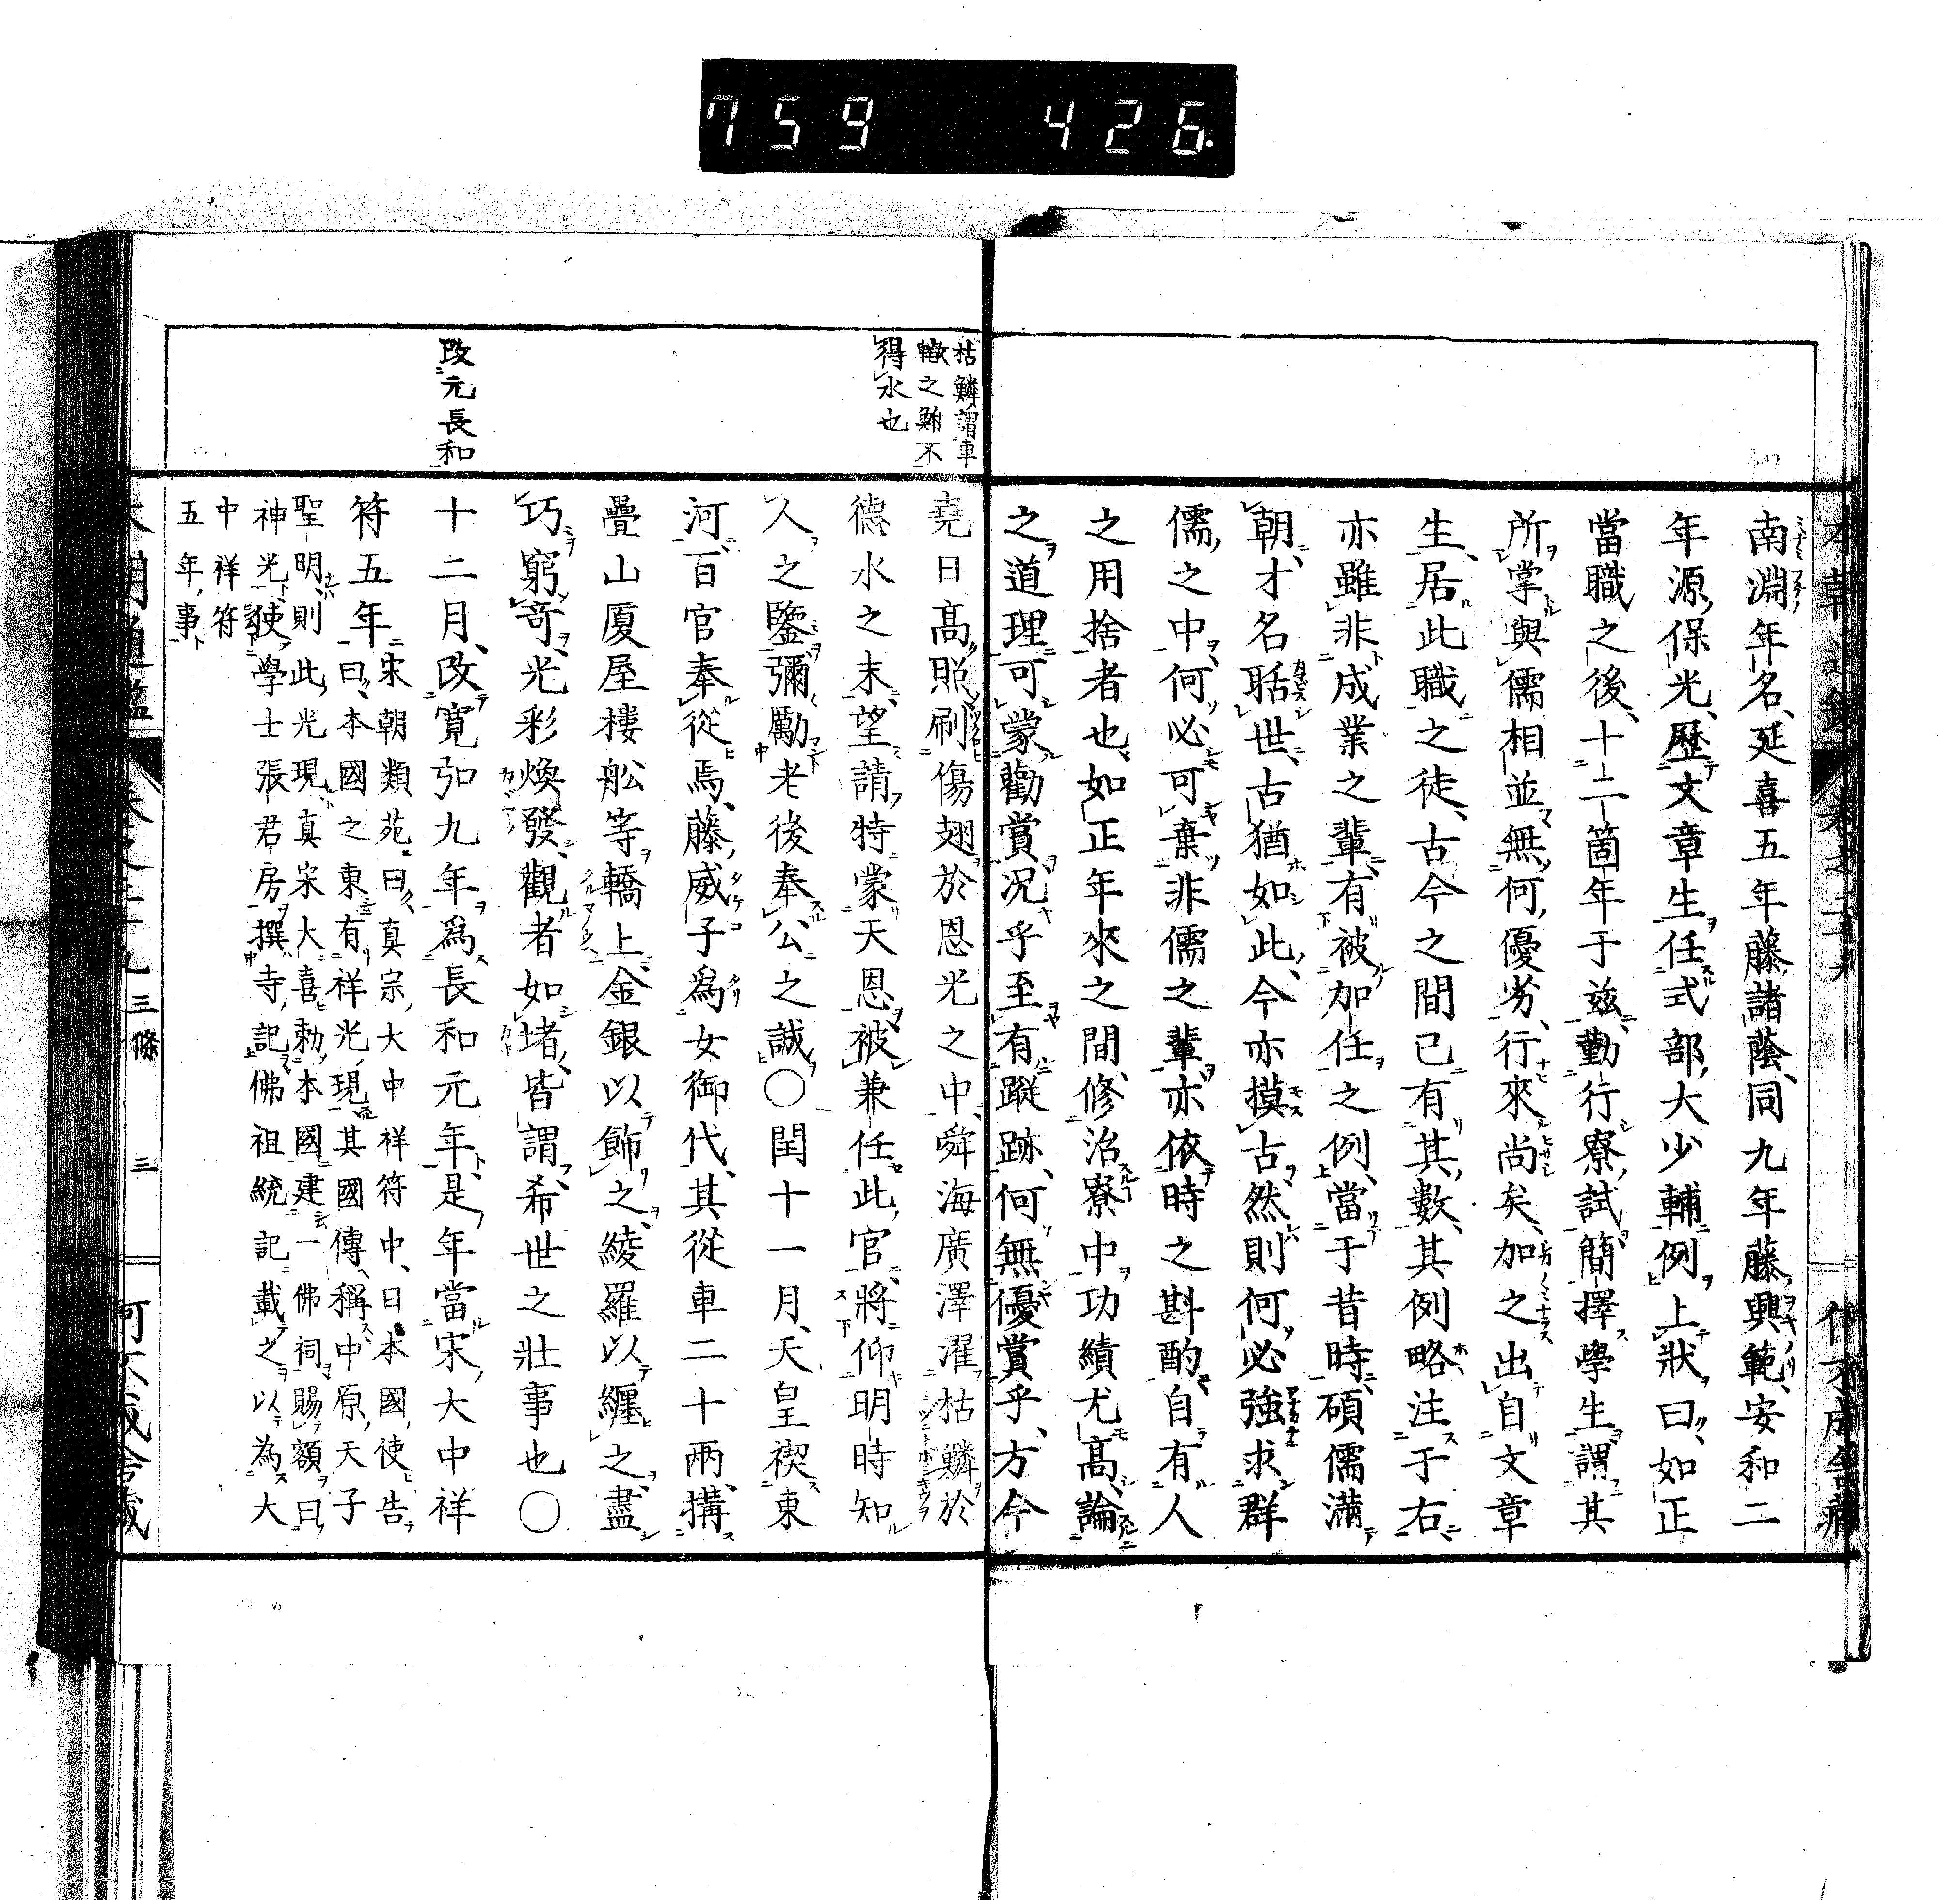 759 426.
南淵年名、延喜五年藤諸蔭、同九年藤興範、安和二
年源保光、歷文章生任式部大少輔例上狀曰、如正
當職之後、十二箇年于兹、勤行寮試簡擇學生、謂其
所掌與儒相並、無何優劣、行來尚矣、加之出自文章
生、居此職之徒、古今之間已有其數、其例略注于右、
亦雖非成業之輩、有被加任之例、當于昔時、碩儒滿
朝、才名聒世、古猶如此、今亦摸古、然則何必強求群
儒之中、何必可棄非儒之輩、亦依時之斟酌、自有人
之用捨者也、如正年來之間、修治寮中功績尤高、論
之道理、可蒙勸賞、況乎至有蹤跡、何無優賞乎、方今
枯鱗謂車
轍之鮒不
得水也
堯日高照、刷傷翅於恩光之中、舜海廣澤、濯枯鱗於
德水之末、望請特蒙天恩、被兼任此官、將仰明時知
人之鑒、彌勵老後奉公之誠○閏十一月、天皇禊東
河、百官奉從焉、藤威子為女御代、其從車二十兩、搆
疊山廈屋樓舩等轎上、金銀以飾之、綾羅以纏之、盡
巧窮奇、光彩煥發、觀者如堵、皆謂希世之壯事也○
改元長和
十二月、改寬弘九年為長和元年、是年當宋大中祥
符五年
宋朝類苑曰、真宗大中祥符中、日本國使告
曰、本國之東有祥光現、其國傳稱中原天子
聖明、則此光現、真宋大喜、勅本國建一佛祠、賜額曰
神光、使學士張君房撰寺記、佛祖統記載之以為大
中祥符
五年事
三條 三